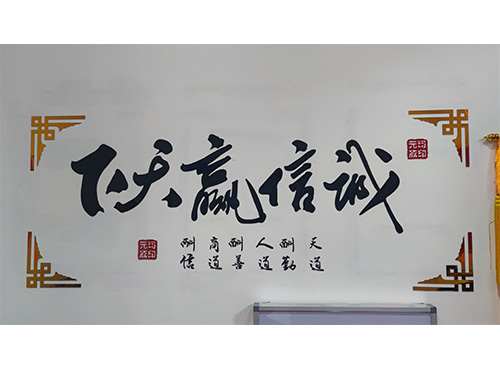 诚信赢天下
天道
酬勤
人道
酬善
商道
酬信